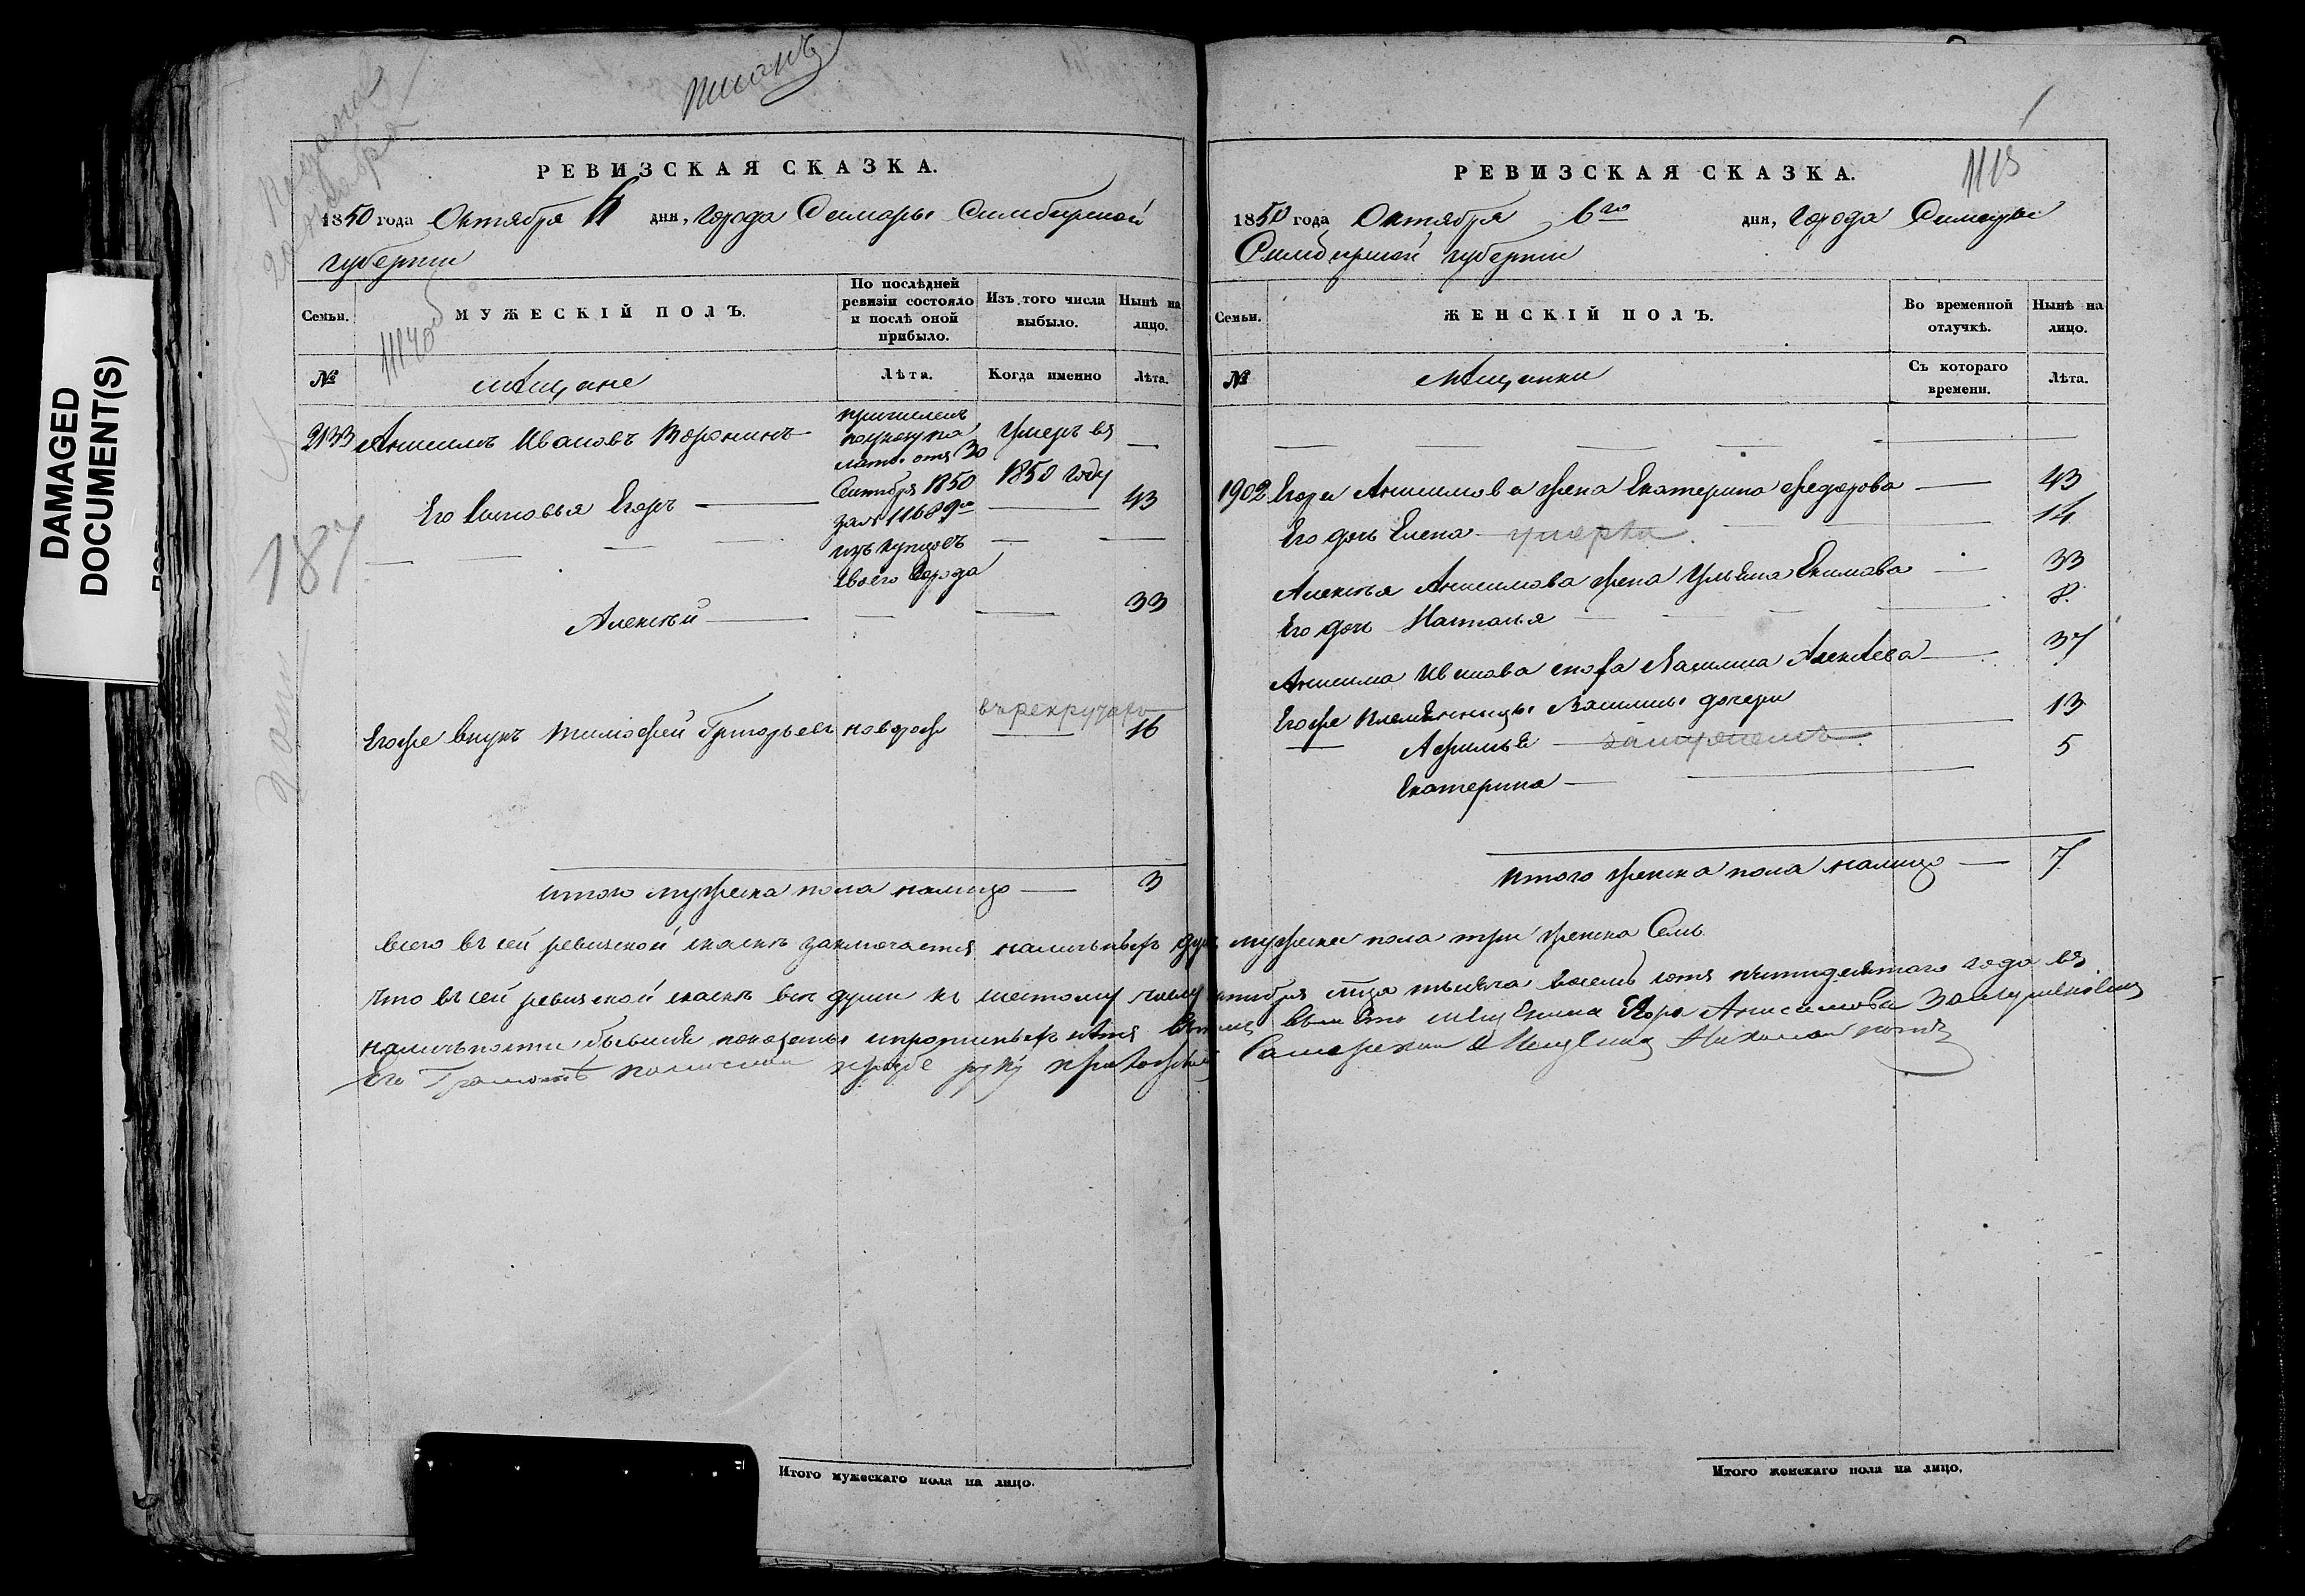 DAMAGED
DOCUMENT(S)
187
РЕВИЗСКАЯ СКАЗКА.
1850 года Октября 6 дня, города Самары Симбирской
губерніи
Семьи.
МУЖЕСКІЙ ПОЛЪ.
По послѣдней
ревизіи состояло
и послѣ оной
прибыло.
Изъ того числа
выбыло.
Нынѣ на
лицо.
№
мѣщане
Лѣта.
Когда именно
Лѣта.
2133 Анисимъ Ивановъ Воронинъ
причисленъ
по указу
палаты отъ 30
Сентября 1850
за № 11689
изъ купцовъ
сего города
Умеръ въ
1850 году
—
Его сыновья Егоръ — 43
Алексѣй — 33
Его же внукъ Тимофей Григорьевъ
въ рекрутахъ
16
итого мужеска пола налицо — 3
РЕВИЗСКАЯ СКАЗКА.
1850 года Октября 6го дня, города Самары
Симбирской губерніи
Семьи.
ЖЕНСКІЙ ПОЛЪ.
Во временной
отлучкѣ.
Нынѣ на
лицо.
№
мѣщанки
Съ котораго
времени.
Лѣта.
1902 Егора Анисимова жена Екатерина Федорова — 43
Его дочь Елена умерла 14
Алексѣя Анисимова жена Ульяна Екимова — 33
Его дочь Наталья 8
Анисима Иванова сноха Василиса Алексѣева — 37
Его же племянницы Василисы дочери
Афимья замужемъ 13
Екатерина — 5
итого женска пола налицо — 7
всего въ сей ревизской сказкѣ заключается наличныхъ душъ мужеска пола три женска Семь
что въ сей ревизской сказкѣ всѣ души къ шестому числу октября тысяча восемь сотъ пятидесятаго года въ
наличности бывшія показаны и прописныхъ нѣтъ въ томъ вмѣсто мѣщанина Егора Анисимова
его
Итого мужескаго пола на лицо.
Итого женскаго пола на лицо.